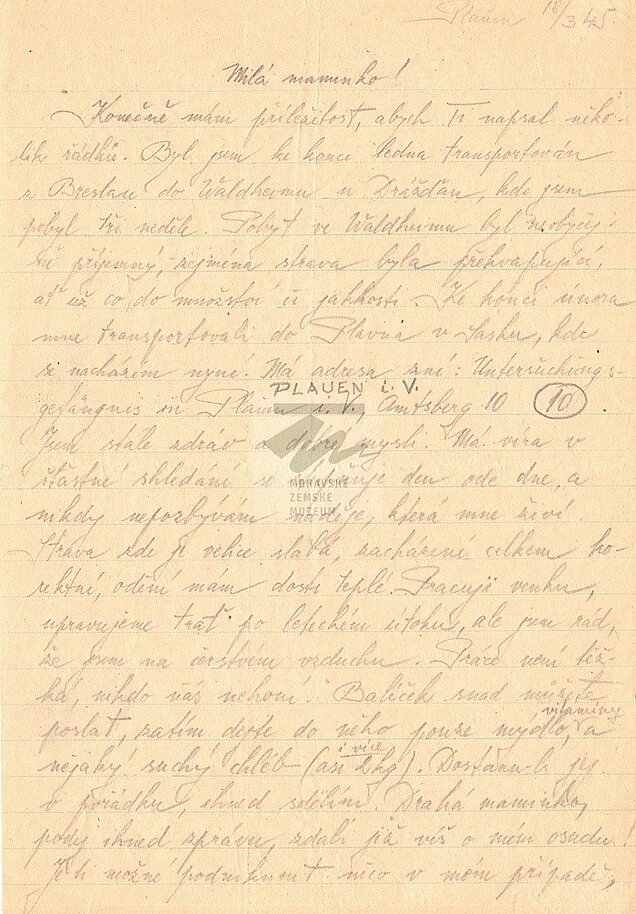 Plauen 18/3 45.
Milá maminko!
Konečně mám příležitost, abych Ti napsal něko-
lik řádků. Byl jsem ke konci ledna transportován
z Breslau do Waldheimu u Drážďan, kde jsem
pobyl tři neděle. Pobyt ve Waldheimu byl neobyčej-
ně příjemný, zejména strava byla překvapující,
ať už co do množství či jakkosti. Ke konci února
mne transportovali do Plavna v Sasku, kde
se nacházím nyní. Má adresa zní: Untersuchungs-
PLAUEN i. V.
gefängnes in Plauen i. V., Amtsberg 10 10.
Jsem stále zdráv a dobré mysli. Má víra v
šťastné shledání se den ode dne, a
nikdy nepozbývám naděje, která mne živí.
Strava zde je velice slabá, zacházení celkem ko-
rektní, odění mám dosti teplé. Pracuji venku,
upravujeme trať po leteckém útoku, ale jsem rád,
že jsem na čerstvém vzduchu. Práce není těž-
ká, nikdo nás nehoní. Balíček snad můžete
vitaminy
poslat, zatím dejte do něho pouze mýdlo, a
i více
nějaký suchý chléb (asi 2 kg). Dostanu-li jej
v pořádku, ihned sdělím. Drahá maminko,
podej ihned zprávu, zdali již víš o mém osudu!
Je-li možné podniknout něco v mém případě,
MORAVSKÉ
ZEMSKÉ
MUZEUM